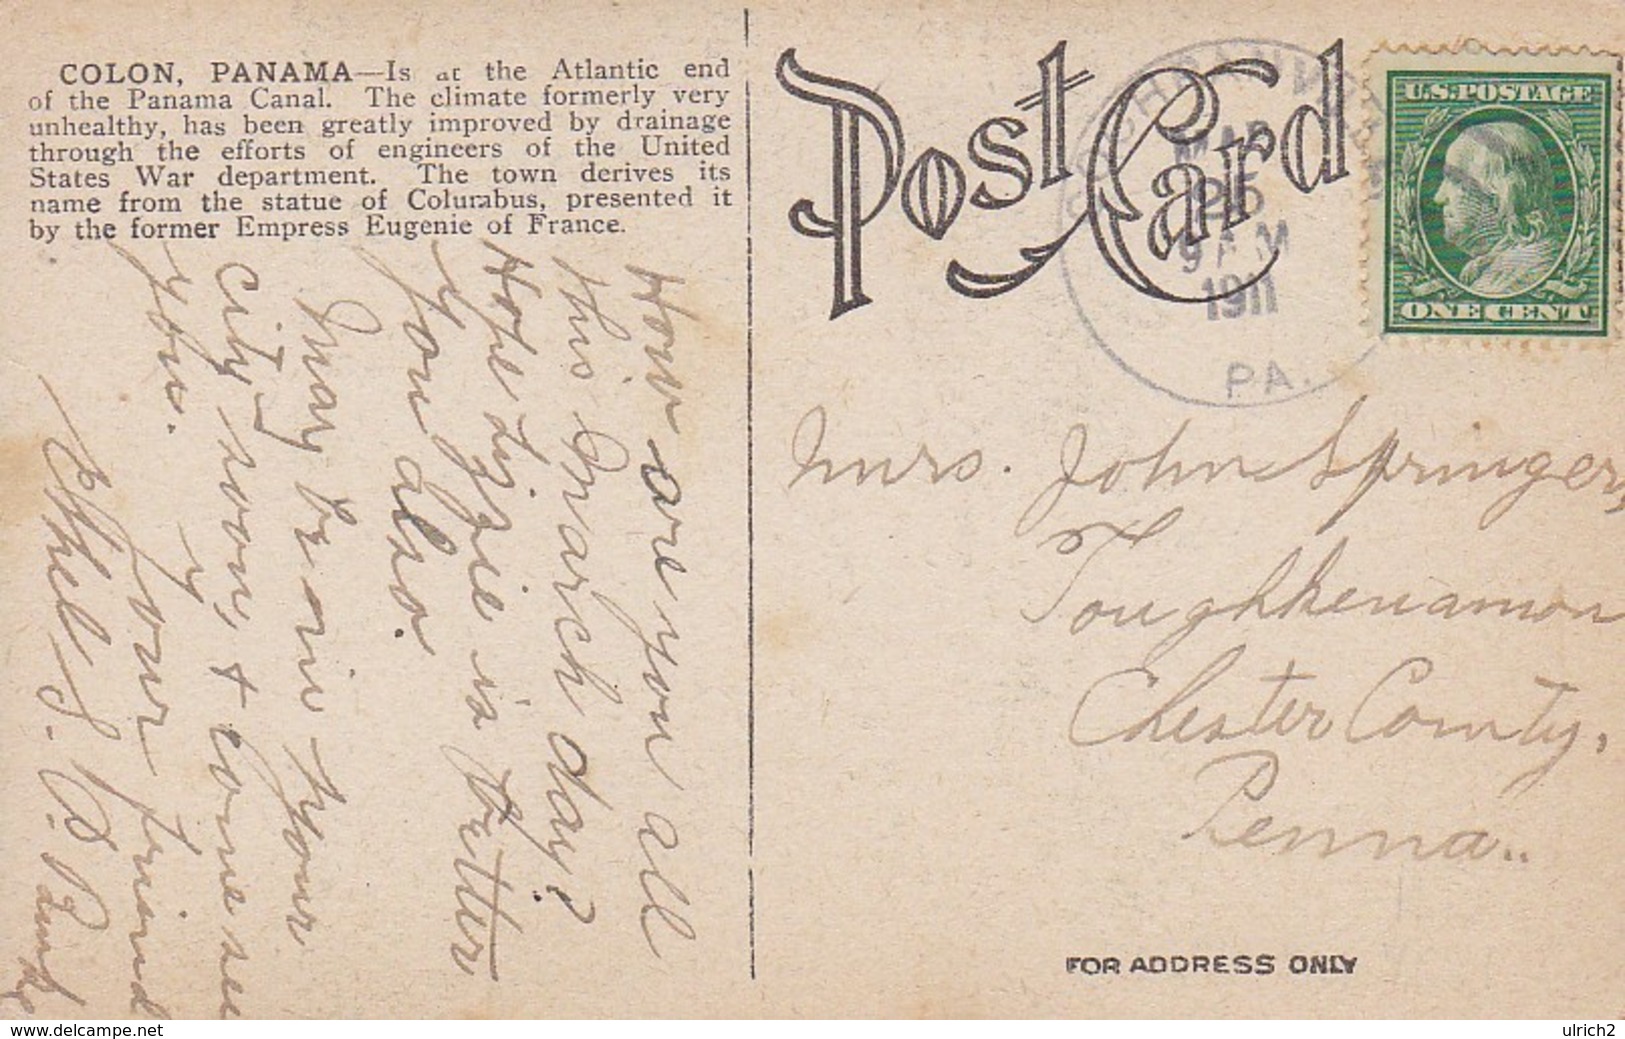 COLON, PANAMA—Is at the Atlantic end
of the Panama Canal. The climate formerly very
unhealthy, has been greatly improved by drainage
through the efforts of engineers of the United
States War department. The town derives its
name from the statue of Columbus, presented it
by the former Empress Eugenie of France.
How are you all
this March day?
Hope Lizzie is better
you also.
May be in your
city soon, + come see
you.
Your friend
Ethel S.
Post Card
COCHRANVILLE
MAR
25
9 AM
1911
PA.
U.S. POSTAGE
ONE CENT
Mrs. John Springer,
Toughkenamon
Chester County,
Penna..
FOR ADDRESS ONLY
www.delcampe.net
ulrich2